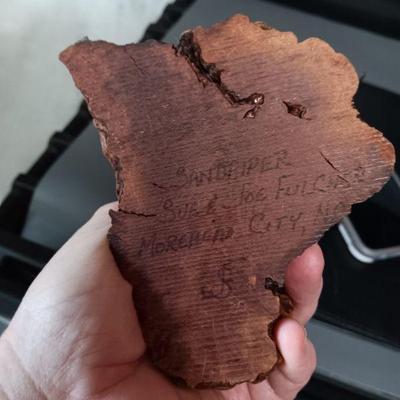 SANDPIPER
SUE & JOE FULCHER
MOREHEAD CITY, NC
JF